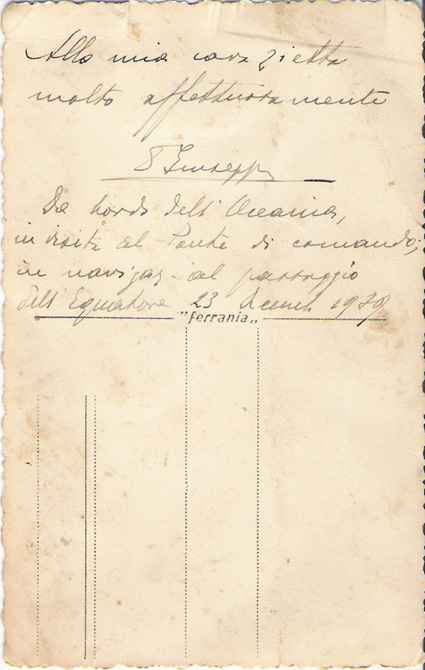 Alla mia cara zietta
molto affettuosamente
Giuseppe
Da bordo dell'Oceania,
in visita al Ponte di comando;
in navigaz. al passaggio
dell'Equatore 23 Dicemb 1939
"ferrania"